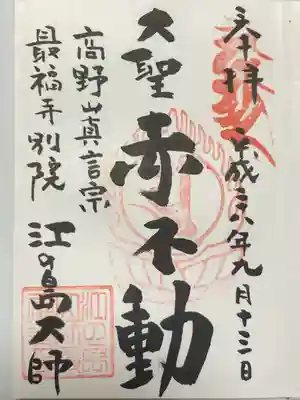 奉拝 平成二六年九月十三日
大聖赤不動
高野山真言宗
最福寺別院 江の島大師